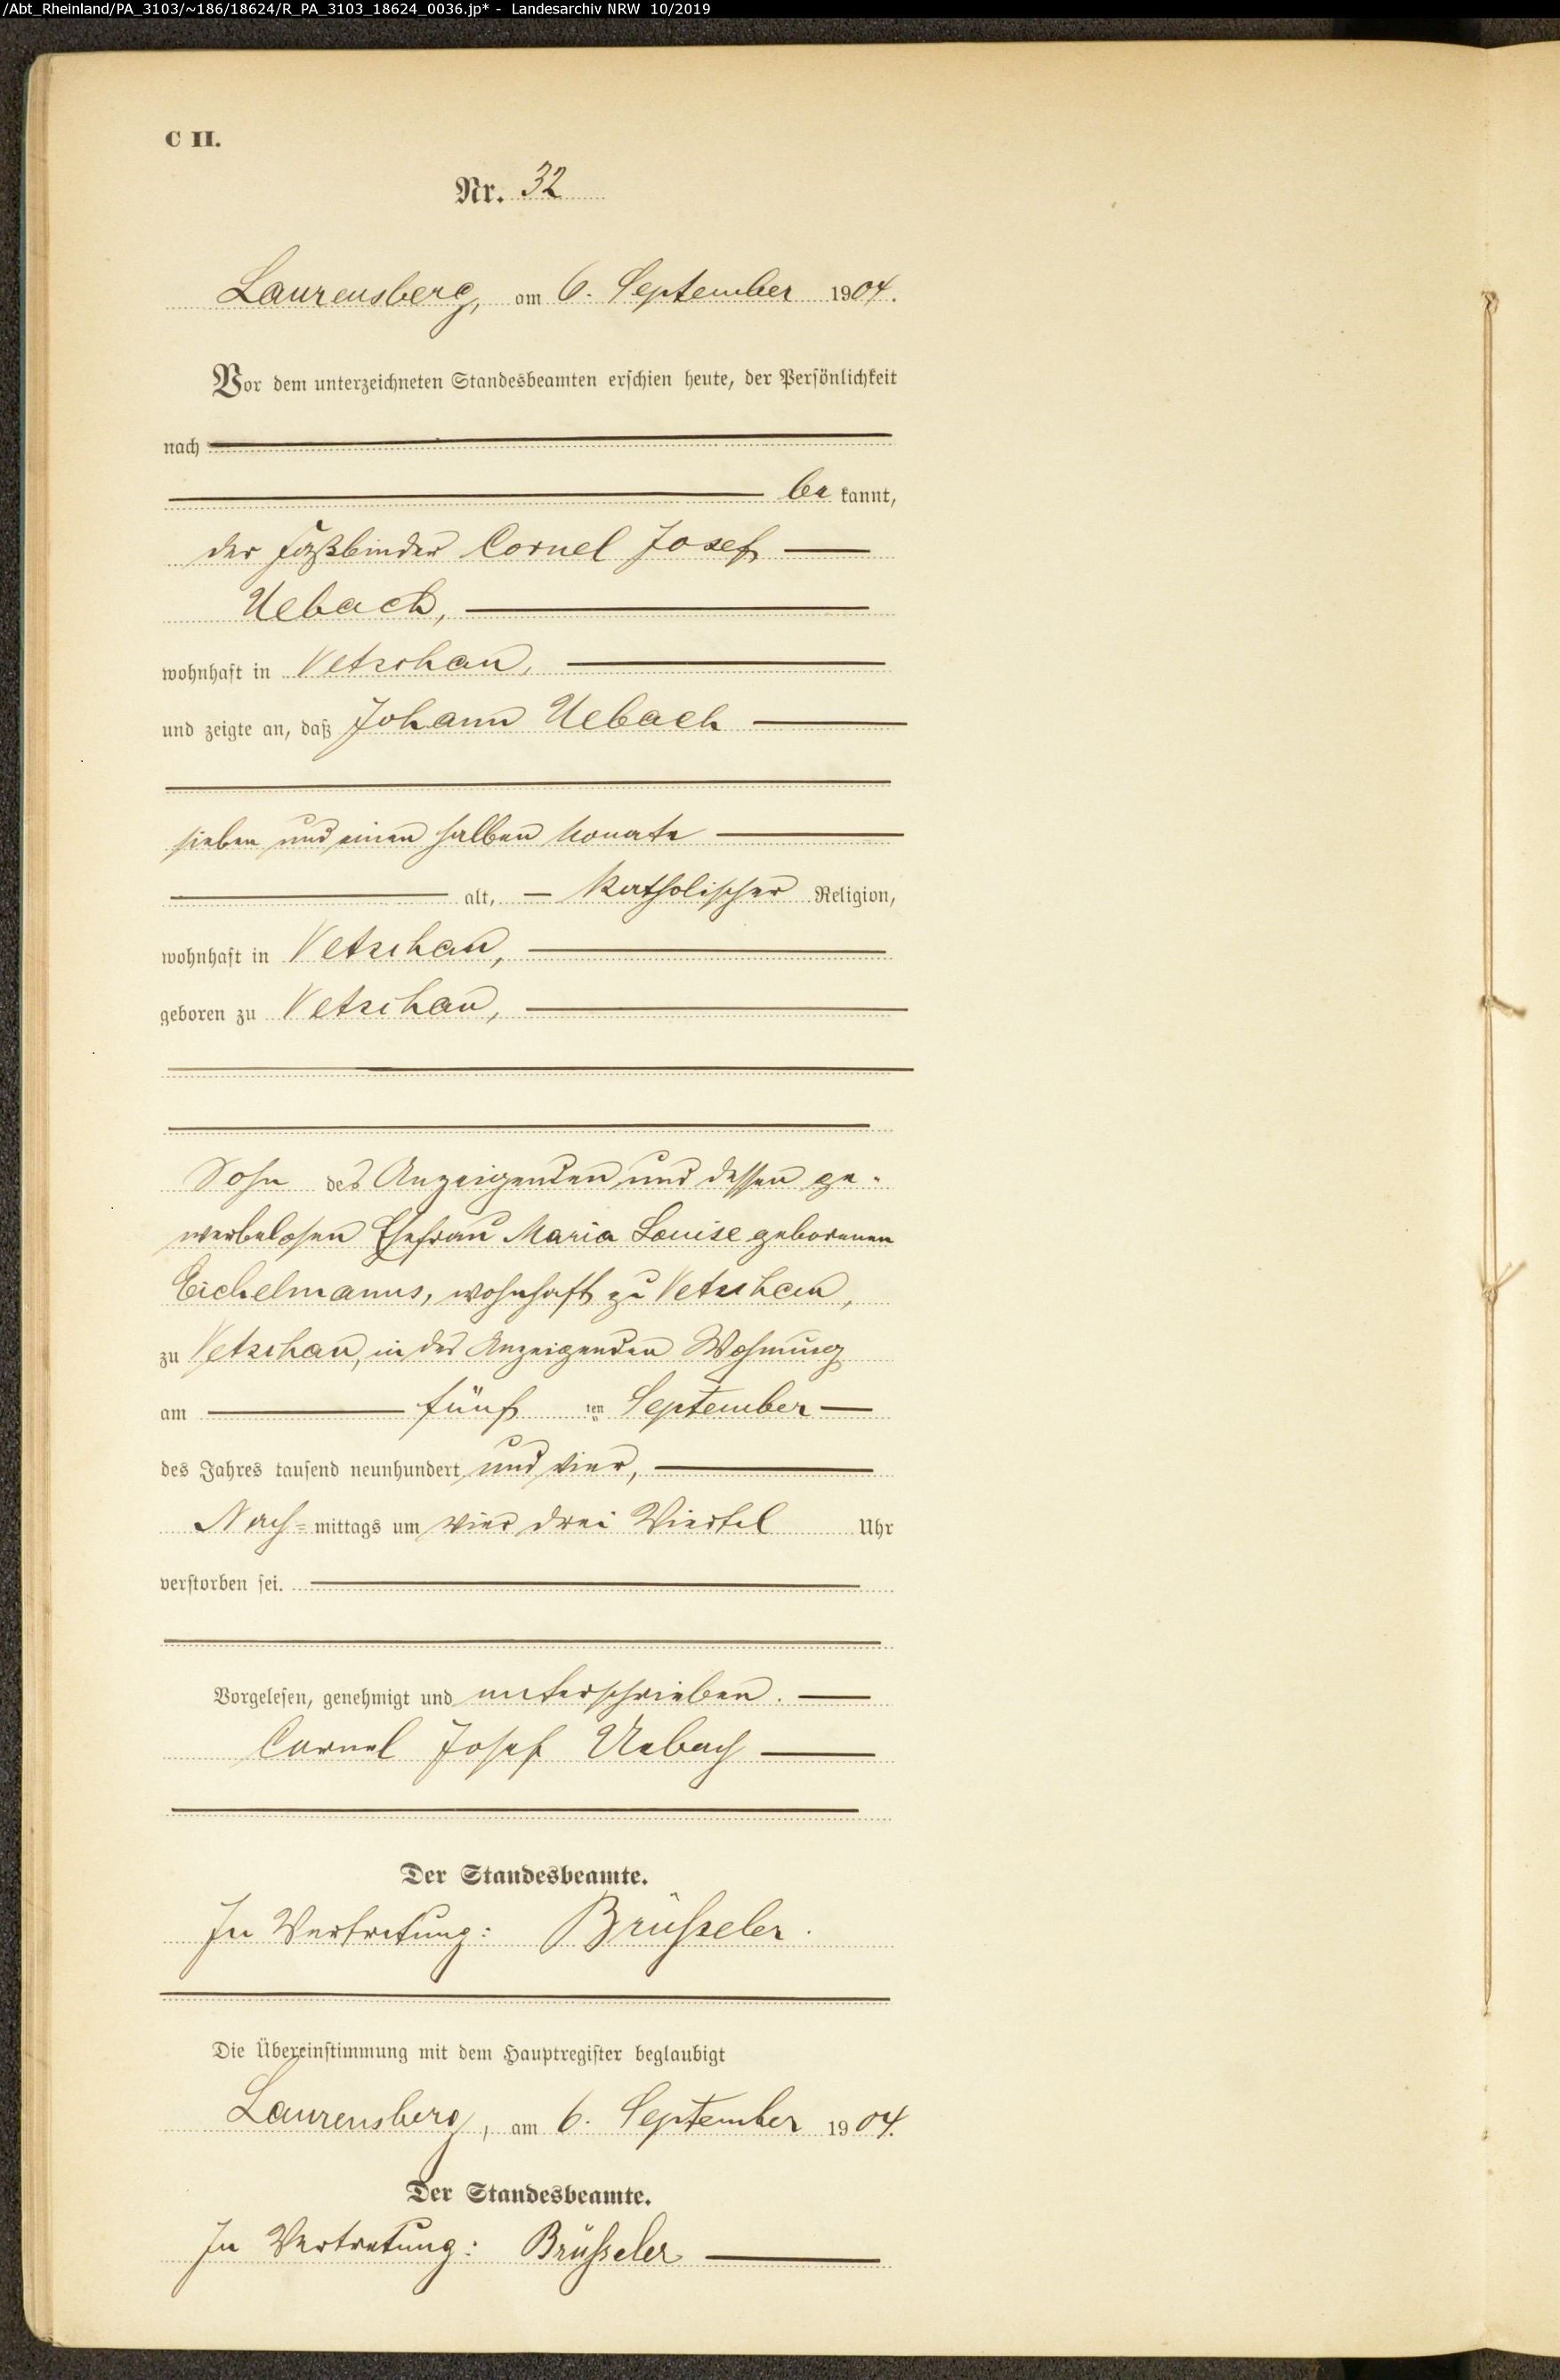 /Abt_Rheinland/PA_3103/~186/18624/R_PA_3103_18624_0036.jp* - Landesarchiv NRW 10/2019
C II.
Nr. 32
Laurensberg, am 6. September 1904.
Vor dem unterzeichneten Standesbeamten erschien heute, der Persönlichkeit
nach
be kannt,
der Faßbinder Cornel Josef
Uebach,
wohnhaft in Vetschau,
und zeigte an, daß Johann Uebach
sieben und einen halben Monate
alt, katholischer Religion,
wohnhaft in Vetschau,
geboren zu Vetschau,
Sohn des Anzeigenden und dessen ge-
werbelosen Ehefrau Maria Louise geborenen
Eichelmanns, wohnhaft zu Vetschau,
zu Vetschau, in des Anzeigenden Wohnung
am fünf ten September
des Jahres tausend neunhundert und vier,
Nach= mittags um vier drei Viertel Uhr
verstorben sei.
Vorgelesen, genehmigt und unterschrieben.
Cornel Josef Uebach
Der Standesbeamte.
In Vertretung: Brüsseler.
Die Übereinstimmung mit dem Hauptregister beglaubigt
Laurensberg, am 6. September 1904.
Der Standesbeamte.
In Vertretung: Brüsseler